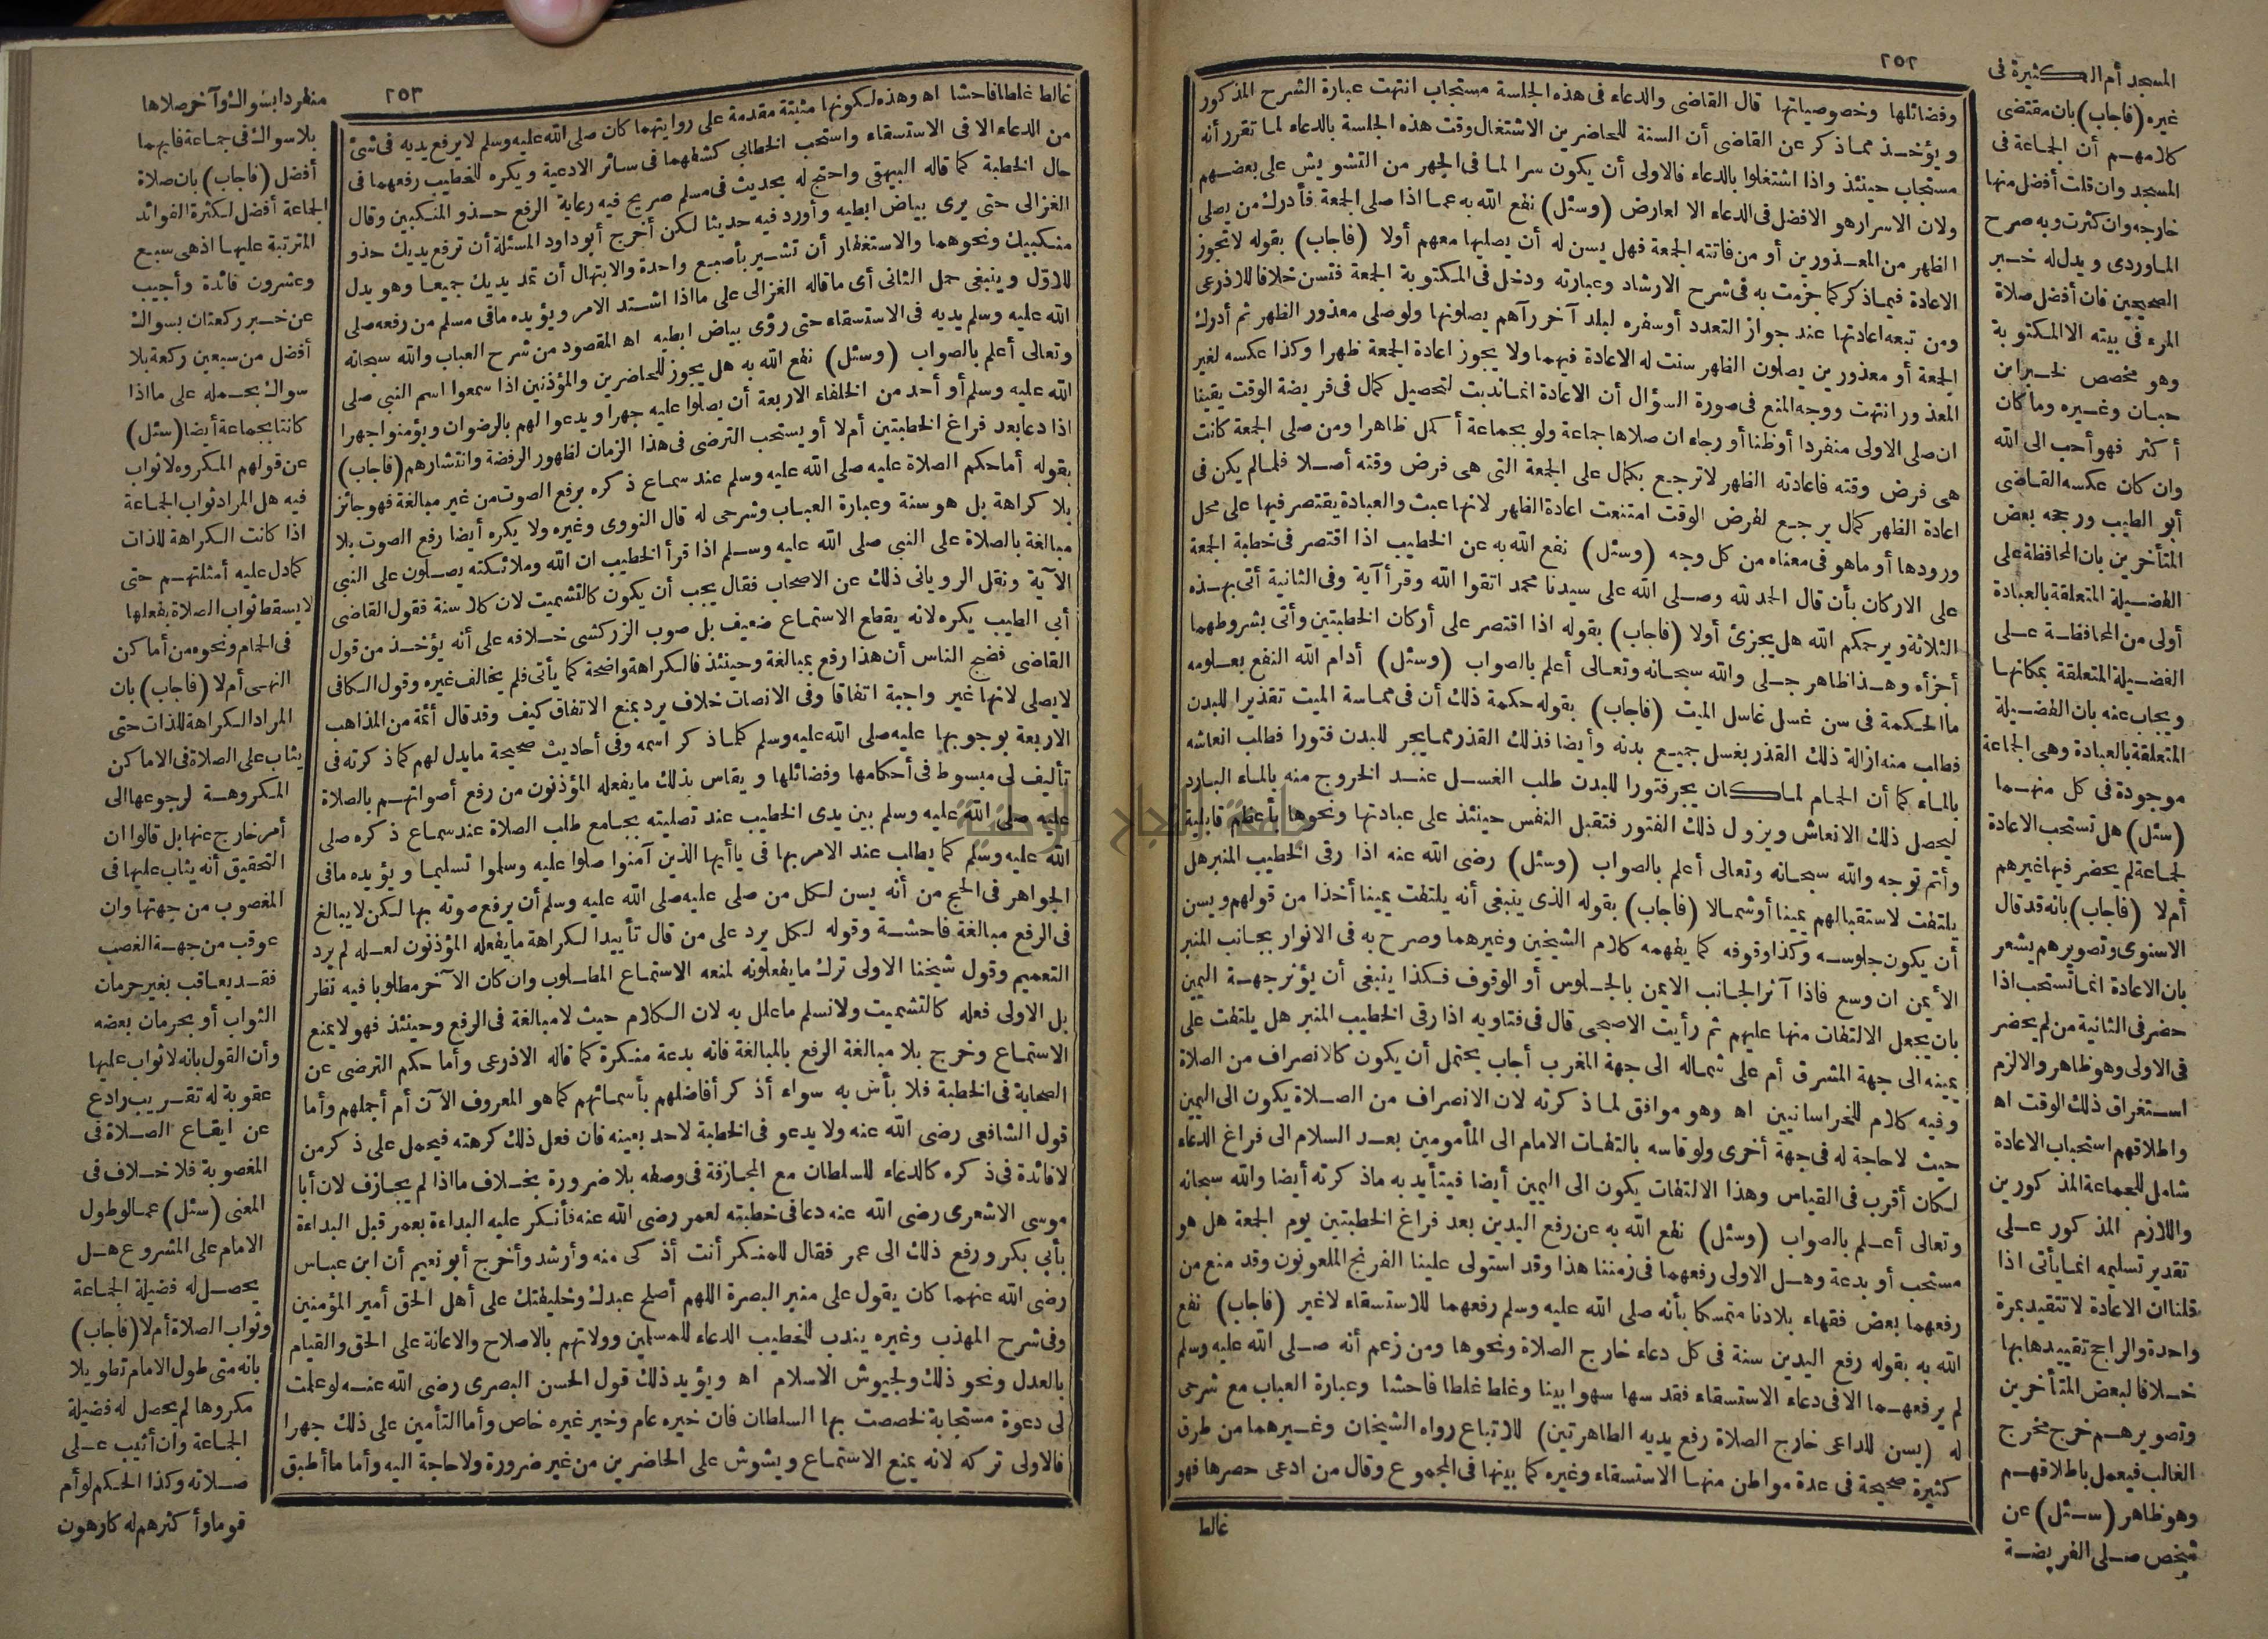 ٢٥٢
وفضائلها وخصوصياتها قال القاضى والدعاء فى هذه الجلسة مستجاب انتهت عبارة الشرح المذكور
ويؤخذ مما ذكر عن القاضى أن السنة للحاضرين الاشتغال وقت هذه الجلسة بالدعاء لما تقرر أنه
مستجاب حينئذ واذا اشتغلوا بالدعاء فالاولى أن يكون سرا لما فى الجهر من التشويش على بعضهم
ولان الاسرار هو الافضل فى الدعاء الا لعارض (وسئل) نفع الله به عما اذا صلى الجمعة فأدرك من يصلى
الظهر من المعذورين أو من فاتته الجمعة فهل يسن له أن يصليها معهم أولا (فاجاب) بقوله لا تجوز
الاعادة فيما ذكر كما جزمت به فى شرح الارشاد وعبارته ودخل فى المكتوبة الجمعة فتسن خلافا للاذرعى
ومن تبعه اعادتها عند جواز التعدد أو سفره لبلد آخر رآهم يصلونها ولو صلى معذور الظهر ثم أدرك
الجمعة أو معذورين يصلون الظهر سنت له الاعادة فيهما ولا يجوز اعادة الجمعة ظهرا وكذا عكسه لغير
المعذور انتهت ووجه المنع فى صورة السؤال أن الاعادة انما ندبت لتحصيل كمال فى فريضة الوقت يقينا
ان صلى الاولى منفردا أو ظنا أو رجاء ان صلاها جماعة ولو بجماعة أكمل ظاهرا ومن صلى الجمعة كانت
هى فرض وقته فاعادته الظهر لا ترجع بكمال على الجمعة التى هى فرض وقته أصلا فلما لم يكن فى
اعادة الظهر كمال يرجع لفرض الوقت امتنعت اعادة الظهر لانها عبث والعبادة يقتصر فيها على محل
ورودها أو ما هو فى معناه من كل وجه (وسئل) نفع الله به عن الخطيب اذا اقتصر فى خطبة الجمعة
على الاركان بأن قال الحمد لله وصلى الله على سيدنا محمد اتقوا الله وقرأ آية وفى الثانية أتى بهذه
الثلاثة ويرحمكم الله هل يجزئ أولا (فاجاب) بقوله اذا اقتصر على أركان الخطبتين وأتى بشروطهما
أجزأه وهذا ظاهر جلى والله سبحانه وتعالى أعلم بالصواب (وسئل) أدام الله النفع بعلومه
ما الحكمة فى سن غسل غاسل الميت (فاجاب) بقوله حكمة ذلك أن فى مماسة الميت تقذيرا للبدن
فطلب منه ازالة ذلك القذر بغسل جميع بدنه وأيضا فذلك القذر مما يجر للبدن فتورا فطلب انعاشه
بالماء كما أن الحمام لما كان يجر فتورا للبدن طلب الغسل عند الخروج منه بالماء البارد
ليحصل ذلك الانعاش ويزول ذلك الفتور فتقبل النفس حينئذ على عبادتها ونحوها بأعظم قابلية
وأتم توجه والله سبحانه وتعالى أعلم بالصواب (وسئل) رضى الله عنه اذا رقى الخطيب المنبر هل
يلتفت لاستقبالهم يمينا أو شمالا (فاجاب) بقوله الذى ينبغى أنه يلتفت يمينا أخذا من قولهم ويسن
أن يكون جلوسه وكذا وقوفه كما يفهمه كلام الشيخين وغيرهما وصرح به فى الانوار بجانب المنبر
الأيمن ان وسع فاذا آثر الجانب الايمن بالجلوس أو الوقوف فكذا ينبغى أن يؤثر جهة اليمين
بان يجعل الالتفات منها عليهم ثم رأيت الاصبحى قال فى فتاويه اذا رقى الخطيب المنبر هل يلتفت على
يمينه الى جهة المشرق أم على شماله الى جهة المغرب أجاب يحتمل أن يكون كالانصراف من الصلاة
وفيه كلام للخراسانيين اه وهو موافق لما ذكرته لان الانصراف من الصلاة يكون الى اليمين
حيث لا حاجة له فى جهة أخرى ولو قاسه بالتفات الامام الى المأمومين بعد السلام الى فراغ الدعاء
لكان أقرب فى القياس وهذا الالتفات يكون الى اليمين أيضا فيتأيد به ما ذكرته أيضا والله سبحانه
وتعالى أعلم بالصواب (وسئل) نفع الله به عن رفع اليدين بعد فراغ الخطبتين يوم الجمعة هل هو
مستحب أو بدعة وهل الاولى رفعهما فى زمننا هذا وقد استولى علينا الفرنج الملعونون وقد منع من
رفعهما بعض فقهاء بلادنا متمسكا بأنه صلى الله عليه وسلم رفعهما للاستسقاء لا غير (فاجاب) نفع
الله به بقوله رفع اليدين سنة فى كل دعاء خارج الصلاة ونحوها ومن زعم أنه صلى الله عليه وسلم
لم يرفعهما الا فى دعاء الاستسقاء فقد سها سهوا بينا وغلط غلطا فاحشا وعبارة العباب مع شرحى
له (يسن للداعى خارج الصلاة رفع يديه الطاهرتين) للاتباع رواه الشيخان وغيرهما من طرق
كثيرة صحيحة فى عدة مواطن منها الاستسقاء وغيره كما بينها فى المجموع وقال من ادعى حصرها فهو
غالط
المسجد أم الكثيرة فى
غيره (فاجاب) بان مقتضى
كلامهم أن الجماعة فى
المسجد وان قلت أفضل منها
خارجه وان كثرت وبه صرح
الماوردى ويدل له خبر
الصحيحين فان أفضل صلاة
المرء فى بيته الا المكتوبة
وهو مخصص لخبر ابن
حبان وغيره وما كان
أكثر فهو أحب الى الله
وان كان عكسه القاضى
أبو الطيب ورجحه بعض
المتأخرين بان المحافظة على
الفضيلة المتعلقة بالعبادة
أولى من المحافظة على
الفضيلة المتعلقة بمكانها
ويجاب عنه بان الفضيلة
المتعلقة بالعبادة وهى الجماعة
موجودة فى كل منهما
(سئل) هل تستحب الاعادة
لجماعة لم يحضر فيها غيرهم
أم لا (فاجاب) بانه قد قال
الاسنوى وتصويرهم يشعر
بان الاعادة انما تستحب اذا
حضر فى الثانية من لم يحضر
فى الاولى وهو ظاهر والا لزم
استغراق ذلك الوقت اه
واطلاقهم استحباب الاعادة
شامل للجماعة المذكورين
واللازم المذكور على
تقدير تسليمه انما يأتى اذا
قلنا ان الاعادة لا تتقيد بمرة
واحدة والراجح تقييدها بها
خلافا لبعض المتأخرين
وتصويرهم خرج مخرج
الغالب فيعمل باطلاقهم
وهو ظاهر (سئل) عن
شخص صلى الفريضة
٢٥٣
غالط غلطا فاحشا اه وهذه لكونها مثبتة مقدمة على روايتهما كان صلى الله عليه وسلم لا يرفع يديه فى شئ
من الدعاء الا فى الاستسقاء واستحب الخطابى كشفهما فى سائر الادعية ويكره للخطيب رفعهما فى
حال الخطبة كما قاله البيهقى واحتج له بحديث فى مسلم صريح فيه رعاية الرفع حذو المنكبين وقال
الغزالى حتى يرى بياض ابطيه وأورد فيه حديثا لكن أخرج أبو داود المسئلة أن ترفع يديك حذو
منكبيك ونحوهما والاستغفار أن تشير بأصبع واحدة والابتهال أن تمد يديك جميعا وهو يدل
للاول وينبغى حمل الثانى أى ما قاله الغزالى على ما اذا اشتد الامر ويؤيده ما فى مسلم من رفعه صلى
الله عليه وسلم يديه فى الاستسقاء حتى رؤى بياض ابطيه اه المقصود من شرح العباب والله سبحانه
وتعالى أعلم بالصواب (وسئل) نفع الله به هل يجوز للحاضرين والمؤذنين اذا سمعوا اسم النبى صلى
الله عليه وسلم أو أحد من الخلفاء الاربعة أن يصلوا عليه جهرا ويدعوا لهم بالرضوان ويؤمنوا جهرا
اذا دعا بعد فراغ الخطبتين أم لا أو يستحب الترضى فى هذا الزمان لظهور الرفضة وانتشارهم (فاجاب)
بقوله أما حكم الصلاة عليه صلى الله عليه وسلم عند سماع ذكره برفع الصوت من غير مبالغة فهو جائز
بلا كراهة بل هو سنة وعبارة العباب وشرحى له قال النووى وغيره ولا يكره أيضا رفع الصوت بلا
مبالغة بالصلاة على النبى صلى الله عليه وسلم اذا قرأ الخطيب ان الله وملائكته يصلون على النبى
الآية ونقل الرويانى ذلك عن الاصحاب فقال يجب أن يكون كالتشميت لان كلا سنة فقول القاضى
أبى الطيب يكره لانه يقطع الاستماع ضعيف بل صوب الزركشى خلافه على أنه يؤخذ من قول
القاضى فضج الناس أن هذا رفع بمبالغة وحينئذ فالكراهة واضحة كما يأتى فلم يخالف غيره وقول الكافى
لا يصلى لانها غير واجبة اتفاقا وفى الانصات خلاف يرد بمنع الاتفاق كيف وقد قال أئمة من المذاهب
الاربعة بوجوبها عليه صلى الله عليه وسلم كلما ذكر اسمه وفى أحاديث صحيحة ما يدل لهم كما ذكرته فى
تأليف لى مبسوط فى أحكامها وفضائلها ويقاس بذلك ما يفعله المؤذنون من رفع أصواتهم بالصلاة
عليه صلى الله عليه وسلم بين يدى الخطيب عند تصليته بجامع طلب الصلاة عند سماع ذكره صلى
الله عليه وسلم كما يطلب عند الامر بها فى يا أيها الذين آمنوا صلوا عليه وسلموا تسليما ويؤيده ما فى
الجواهر فى الحج من أنه يسن لكل من صلى عليه صلى الله عليه وسلم أن يرفع صوته بها لكن لا يبالغ
فى الرفع مبالغة فاحشة وقوله لكل يرد على من قال تأييدا لكراهة ما يفعله المؤذنون لعله لم يرد
التعميم وقول شيخنا الاولى ترك ما يفعلونه لمنعه الاستماع المطلوب وان كان الآخر مطلوبا فيه نظر
بل الاولى فعله كالتشميت ولا نسلم ما علل به لان الكلام حيث لا مبالغة فى الرفع وحينئذ فهو لا يمنع
الاستماع وخرج بلا مبالغة الرفع بالمبالغة فانه بدعة منكرة كما قاله الاذرعى وأما حكم الترضى عن
الصحابة فى الخطبة فلا بأس به سواء أذكر أفاضلهم بأسمائهم كما هو المعروف الآن أم أجملهم وأما
قول الشافعى رضى الله عنه ولا يدعو فى الخطبة لاحد بعينه فان فعل ذلك كرهته فيحمل على ذكر من
لا فائدة فى ذكره كالدعاء للسلطان مع المجازفة فى وصفه بلا ضرورة بخلاف ما اذا لم يجازف لان أبا
موسى الاشعرى رضى الله عنه دعا فى خطبته لعمر رضى الله عنه فأنكر عليه البداءة بعمر قبل البداءة
بأبى بكر ورفع ذلك الى عمر فقال للمنكر أنت أذكى منه وأرشد وأخرج أبو نعيم أن ابن عباس
رضى الله عنهما كان يقول على منبر البصرة اللهم أصلح عبدك وخليفتك على أهل الحق أمير المؤمنين
وفى شرح المهذب وغيره يندب للخطيب الدعاء للمسلمين وولاتهم بالاصلاح والاعانة على الحق والقيام
بالعدل ونحو ذلك ولجيوش الاسلام اه ويؤيد ذلك قول الحسن البصرى رضى الله عنه لو علمت
لى دعوة مستجابة لخصصت بها السلطان فان خيره عام وخير غيره خاص وأما التأمين على ذلك جهرا
فالاولى تركه لانه يمنع الاستماع ويشوش على الحاضرين من غير ضرورة ولا حاجة اليه وأما ما أطبق
منفردا بسواك وآخر صلاها
بلا سواك فى جماعة فايهما
أفضل (فاجاب) بان صلاة
الجماعة أفضل لكثرة الفوائد
المترتبة عليها اذ هى سبع
وعشرون فائدة وأجيب
عن خبر ركعتان بسواك
أفضل من سبعين ركعة بلا
سواك بحمله على ما اذا
كانتا بجماعة أيضا (سئل)
عن قولهم المكروه لا ثواب
فيه هل المراد ثواب الجماعة
اذا كانت الكراهة للذات
كما دل عليه أمثلتهم حتى
لا يسقط ثواب الصلاة بفعلها
فى الحمام ونحوه من أماكن
النهى أم لا (فاجاب) بان
المراد الكراهة للذات حتى
يثاب على الصلاة فى الاماكن
المكروهة لرجوعها الى
أمر خارج عنها بل قالوا ان
التحقيق أنه يثاب عليها فى
المغصوب من جهتها وان
عوقب من جهة الغصب
فقد يعاقب بغير حرمان
الثواب أو بحرمان بعضه
وأن القول بانه لا ثواب عليها
عقوبة له تقريب رادع
عن ايقاع الصلاة فى
المغصوبة فلا خلاف فى
المعنى (سئل) عما لو طول
الامام على المشروع هل
يحصل له فضيلة الجماعة
وثواب الصلاة أم لا (فاجاب)
بانه متى طول الامام تطويلا
مكروها لم يحصل له فضيلة
الجماعة وان أثيب على
صلاته وكذا الحكم لو أم
قوما وأكثرهم له كارهون
جامعة النجاح الوطنية